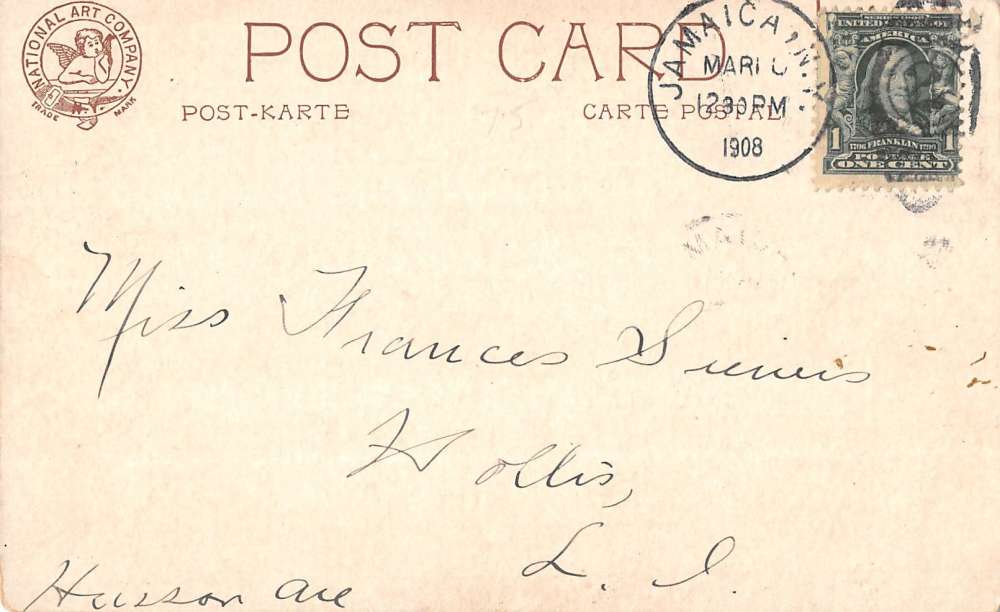 NATIONAL ART COMPANY
N.Y.
TRADE MARK
POST CARD
POST-KARTE
CARTE POSTALE
JAMAICA, N.Y.
MAR
1230 PM
1908
SERIES 1902
UNITED STATES OF
AMERICA
1706 FRANKLIN 1790
1 POSTAGE 1
ONE CENT
Miss Frances
Hollis,
L. I.
Husson Ave